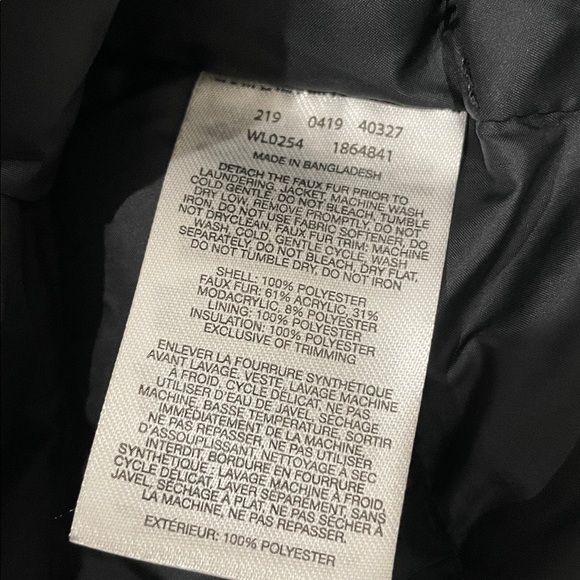 219 0419 40327
WL0254 1864841
MADE IN BANGLADESH
DETACH THE FAUX FUR PRIOR TO
LAUNDERING. JACKET, MACHINE WASH
COLD GENTLE, DO NOT BLEACH, TUMBLE
DRY LOW, REMOVE PROMPTLY, DO NOT
IRON, DO NOT USE FABRIC SOFTENER, DO
NOT DRYCLEAN, FAUX FUR TRIM: MACHINE
WASH, COLD, GENTLE CYCLE, WASH
SEPARATELY, DO NOT BLEACH, DRY FLAT,
DO NOT TUMBLE DRY, DO NOT IRON
SHELL: 100% POLYESTER
FAUX FUR: 61% ACRYLIC, 31%
MODACRYLIC, 8% POLYESTER
LINING: 100% POLYESTER
INSULATION: 100% POLYESTER
EXCLUSIVE OF TRIMMING
ENLEVER LA FOURRURE SYNTHÉTIQUE
AVANT LAVAGE. VESTE, LAVAGE MACHINE
À FROID, CYCLE DÉLICAT, NE PAS
UTILISER D'EAU DE JAVEL, SÉCHAGE
MACHINE, BASSE TEMPÉRATURE, SORTIR
IMMÉDIATEMENT DE LA MACHINE,
NE PAS REPASSER, NE PAS UTILISER
D'ASSOUPLISSANT, NETTOYAGE À SEC
INTERDIT, BORDURE EN FOURRURE
SYNTHÉTIQUE : LAVAGE MACHINE À FROID,
CYCLE DÉLICAT, LAVER SÉPAREMENT, SANS
JAVEL, SÉCHAGE À PLAT, NE PAS SÉCHER À
LA MACHINE, NE PAS REPASSER.
EXTÉRIEUR: 100% POLYESTER